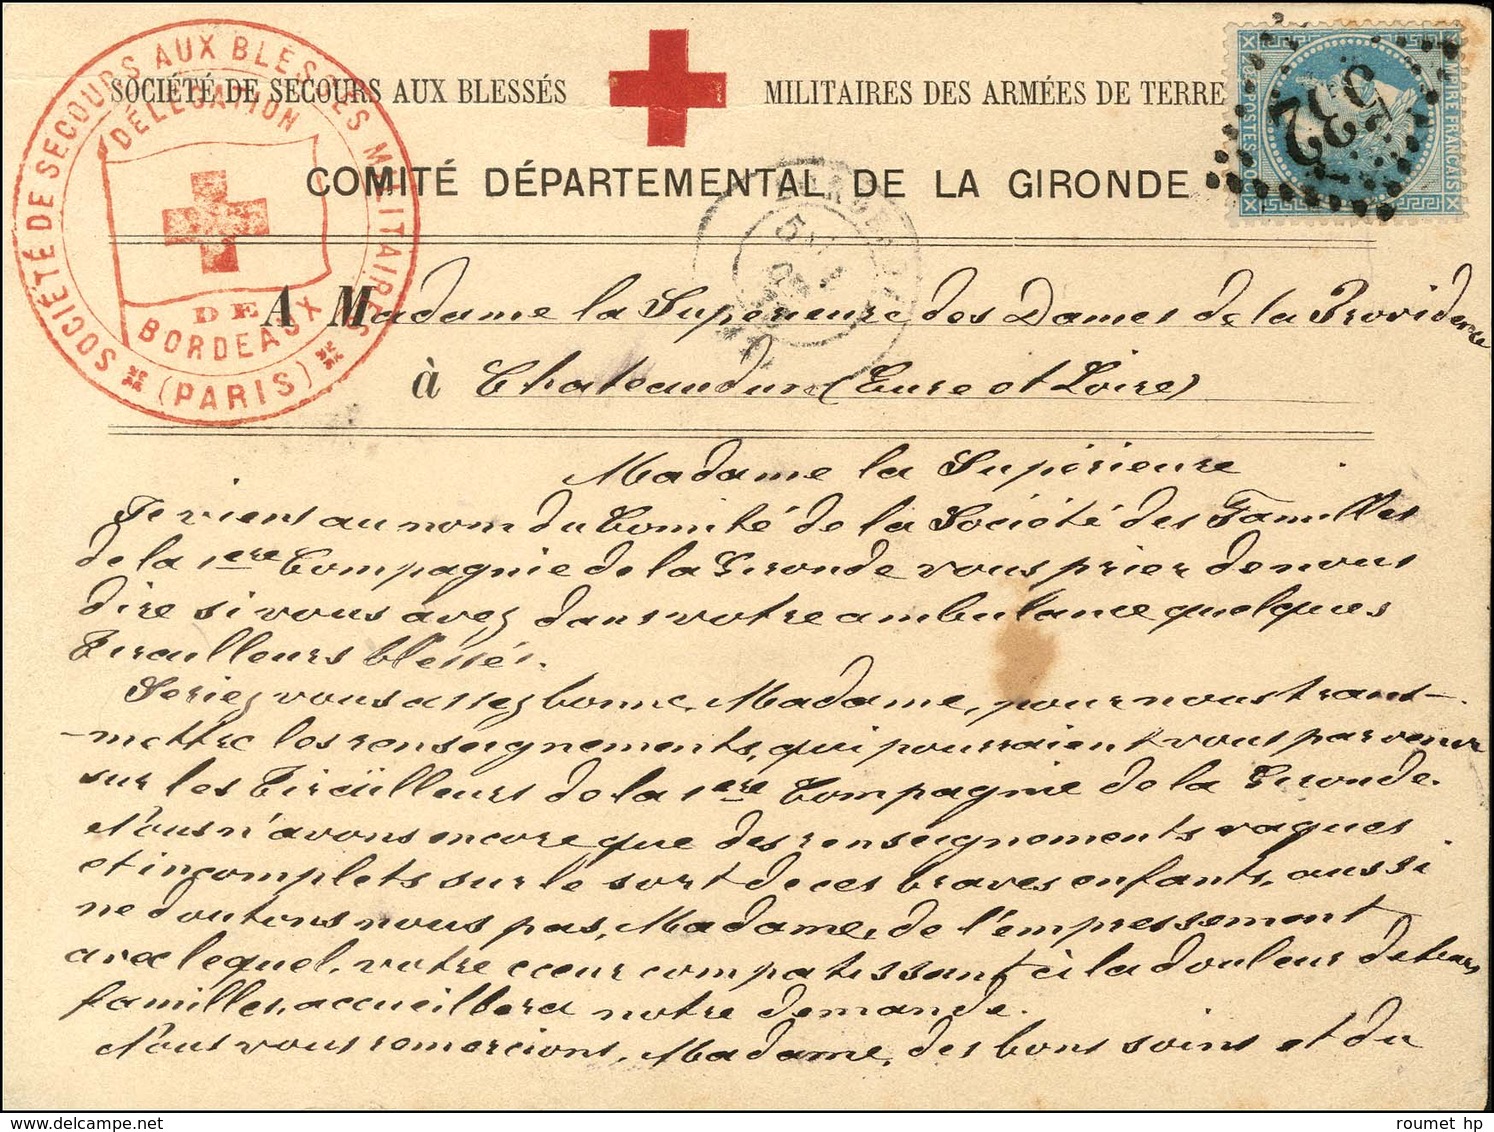 SOCIÉTÉ DE SECOURS AUX BLESSÉS MILITAIRES DES ARMÉES DE TERRE
SOCIÉTÉ DE SECOURS AUX BLESSÉS MILITAIRES
DÉLÉGATION
DE
BORDEAUX
(PARIS)
532
COMITÉ DÉPARTEMENTAL DE LA GIRONDE
A Madame la Supérieure des Dames de la Providence
à Chateaudun (Eure et Loire)
Madame la Supérieure
Je viens au nom du Comité de la Société des Familles
de la 1ere Compagnie de la Gironde vous prier de nous
dire si vous avez dans votre ambulance quelques
Tirailleurs blessés.
Seriez vous assez bonne, Madame, pour nous trans-
-mettre les renseignements, qui pourraient vous parvenir
sur les Tirailleurs de la 1ere Compagnie de la Gironde.
Nous n'avons encore que des renseignements vagues
et incomplets sur le sort de ces braves enfants, aussi
ne doutons nous pas, Madame, de l'empressement
avec lequel, votre cœur compatissant à la douleur de leurs
familles, accueillera notre demande.
Nous vous remercions, Madame, des bons soins et du
roumet hp